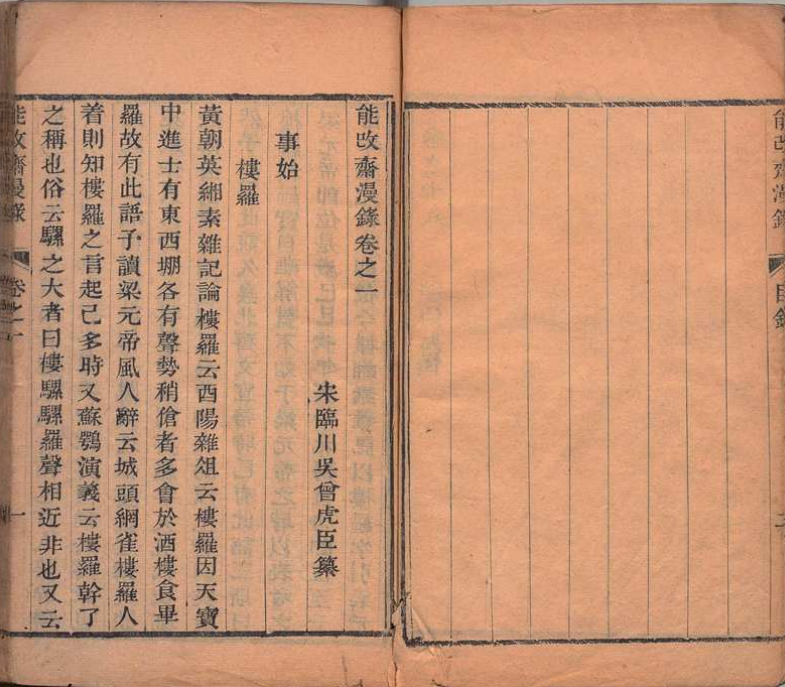 能改齋漫錄
目錄
能改齋漫錄卷之一
宋臨川吳曾虎臣纂
事始
樓羅
黃朝英緗素雜記論樓羅云酉陽雜俎云樓羅因天寶
中進士有東西堋各有聲勢稍傖者多會於酒樓食畢
羅故有此語予讀梁元帝風人辭云城頭網雀樓羅人
着則知樓羅之言起已多時又蘇鶚演義云樓羅幹了
之稱也俗云騾之大者曰樓騾騾羅聲相近非也又云
能改齋漫錄
卷之一
一